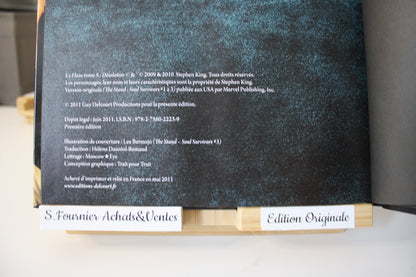 Le Fléau tome 5 : Désolation © & ™ © 2009 & 2010 Stephen King. Tous droits réservés.
Les personnages, leur nom et leurs caractéristiques sont la propriété de Stephen King.
Version originale (The Stand : Soul Survivors #1 à 5) publiée aux USA par Marvel Publishing, Inc.
© 2011 Guy Delcourt Productions pour la présente édition.
Dépôt légal : juin 2011. I.S.B.N : 978-2-7560-2223-9
Première édition
Illustration de couverture : Lee Bermejo (The Stand – Soul Survivors #3)
Traduction : Hélène Dauniol-Remaud
Lettrage : Moscow★Eye
Conception graphique : Trait pour Trait
Achevé d'imprimer et relié en France en mai 2011
www.editions-delcourt.fr
S.Fournier Achats&Ventes
Edition Originale